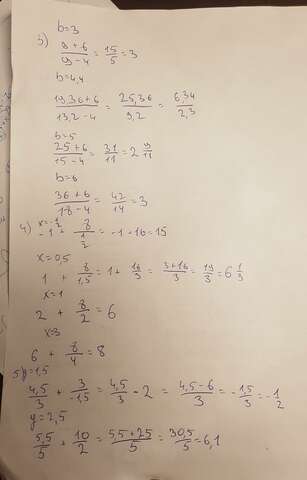 b=3
3) 9+6/9-4 = 15/5 = 3
b=4,4
19,36+6/13,2-4 = 25,36/9,2 = 6,34/2,3
b=5
25+6/15-4 = 31/11 = 2 9/11
b=6
36+6/18-4 = 42/14 = 3
4) x=-1/2
-1 + 8/(1/2) = -1+16=15
x=0,5
1 + 8/1,5 = 1+ 16/3 = 3+16/3 = 19/3 = 6 1/3
x=1
2 + 8/2 = 6
x=3
6 + 8/4 = 8
5) y=1,5
4,5/3 + 3/-1,5 = 4,5/3 - 2 = 4,5-6/3 = -1,5/3 = -1/2
y=2,5
5,5/5 + 10/2 = 5,5+25/5 = 30,5/5 = 6,1